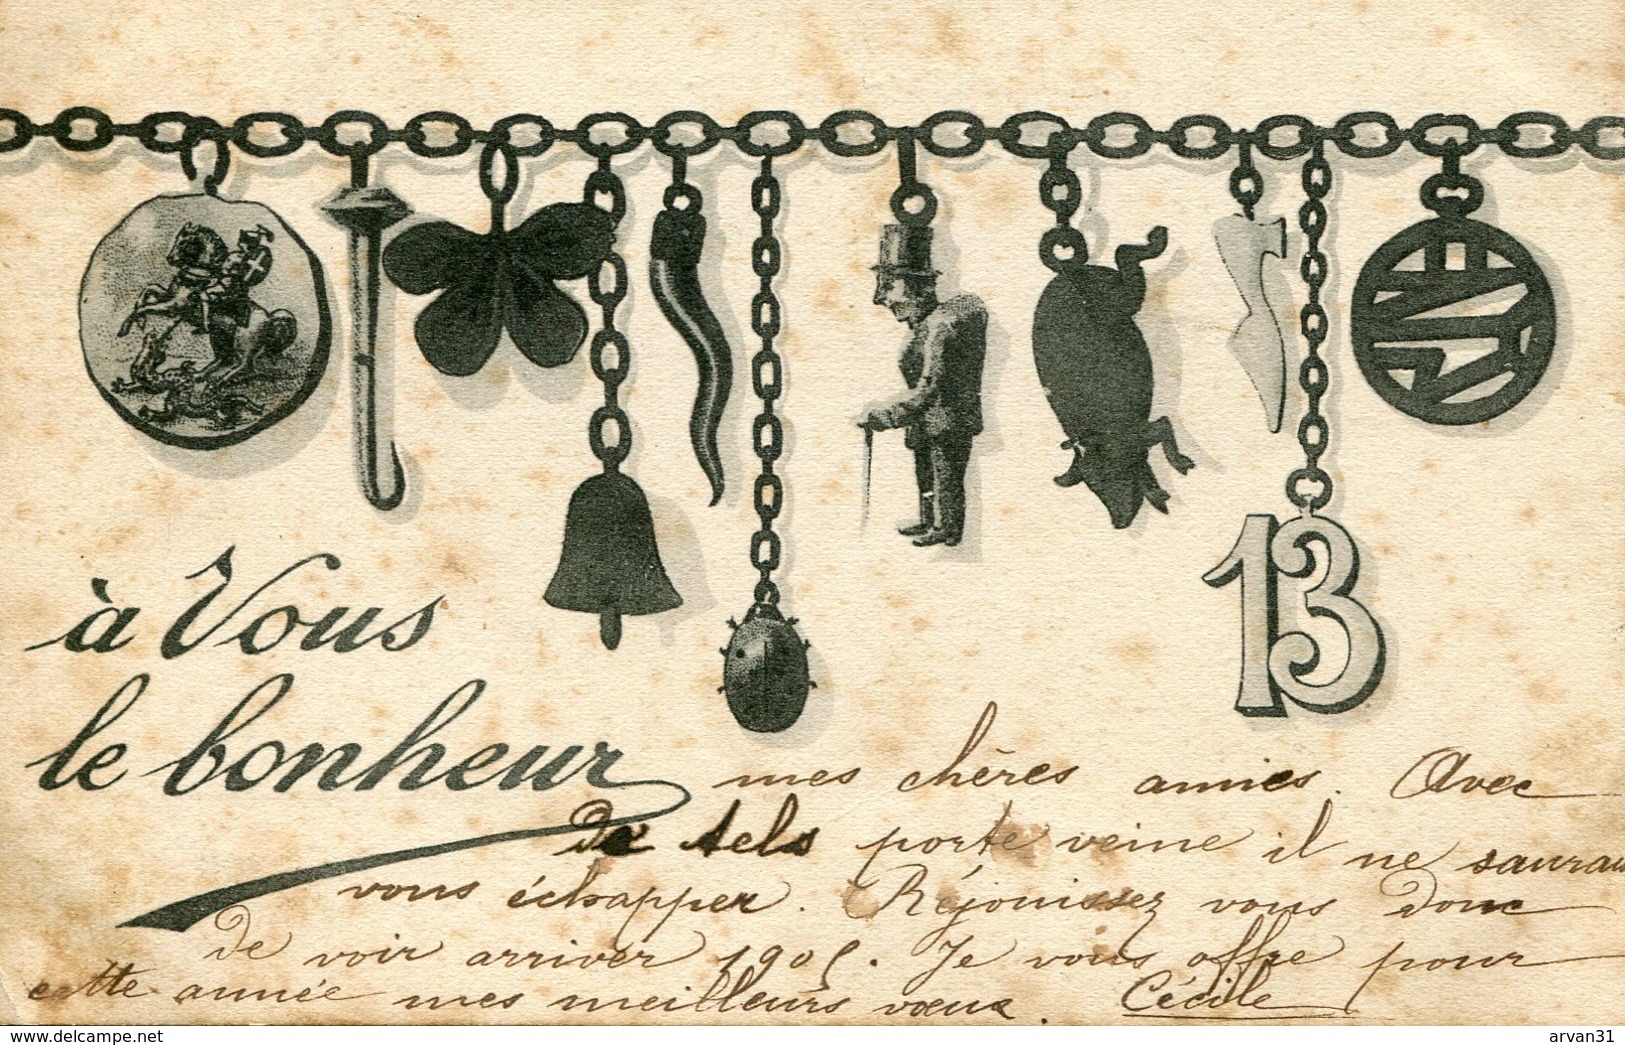 13
à Vous
le bonheur
mes chères amies. Avec
de tels porte veine il ne saurait
vous échapper. Réjouissez vous donc
de voir arriver 1905. Je vous offre pour
cette année mes meilleurs vœux. Cécile
www.delcampe.net
arvan31